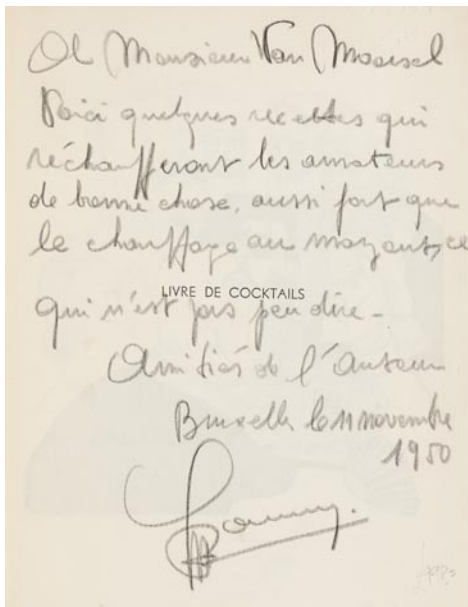 A Monsieur Van Moorsel
Voici quelques recettes qui
réchaufferont les amateurs
de bonne chose, aussi fort que
le chauffage au mazout, ce
LIVRE DE COCKTAILS
qui n'est pas peu dire -
Amitiés de l'Auteur
Bruxelles le 11 novembre
1950